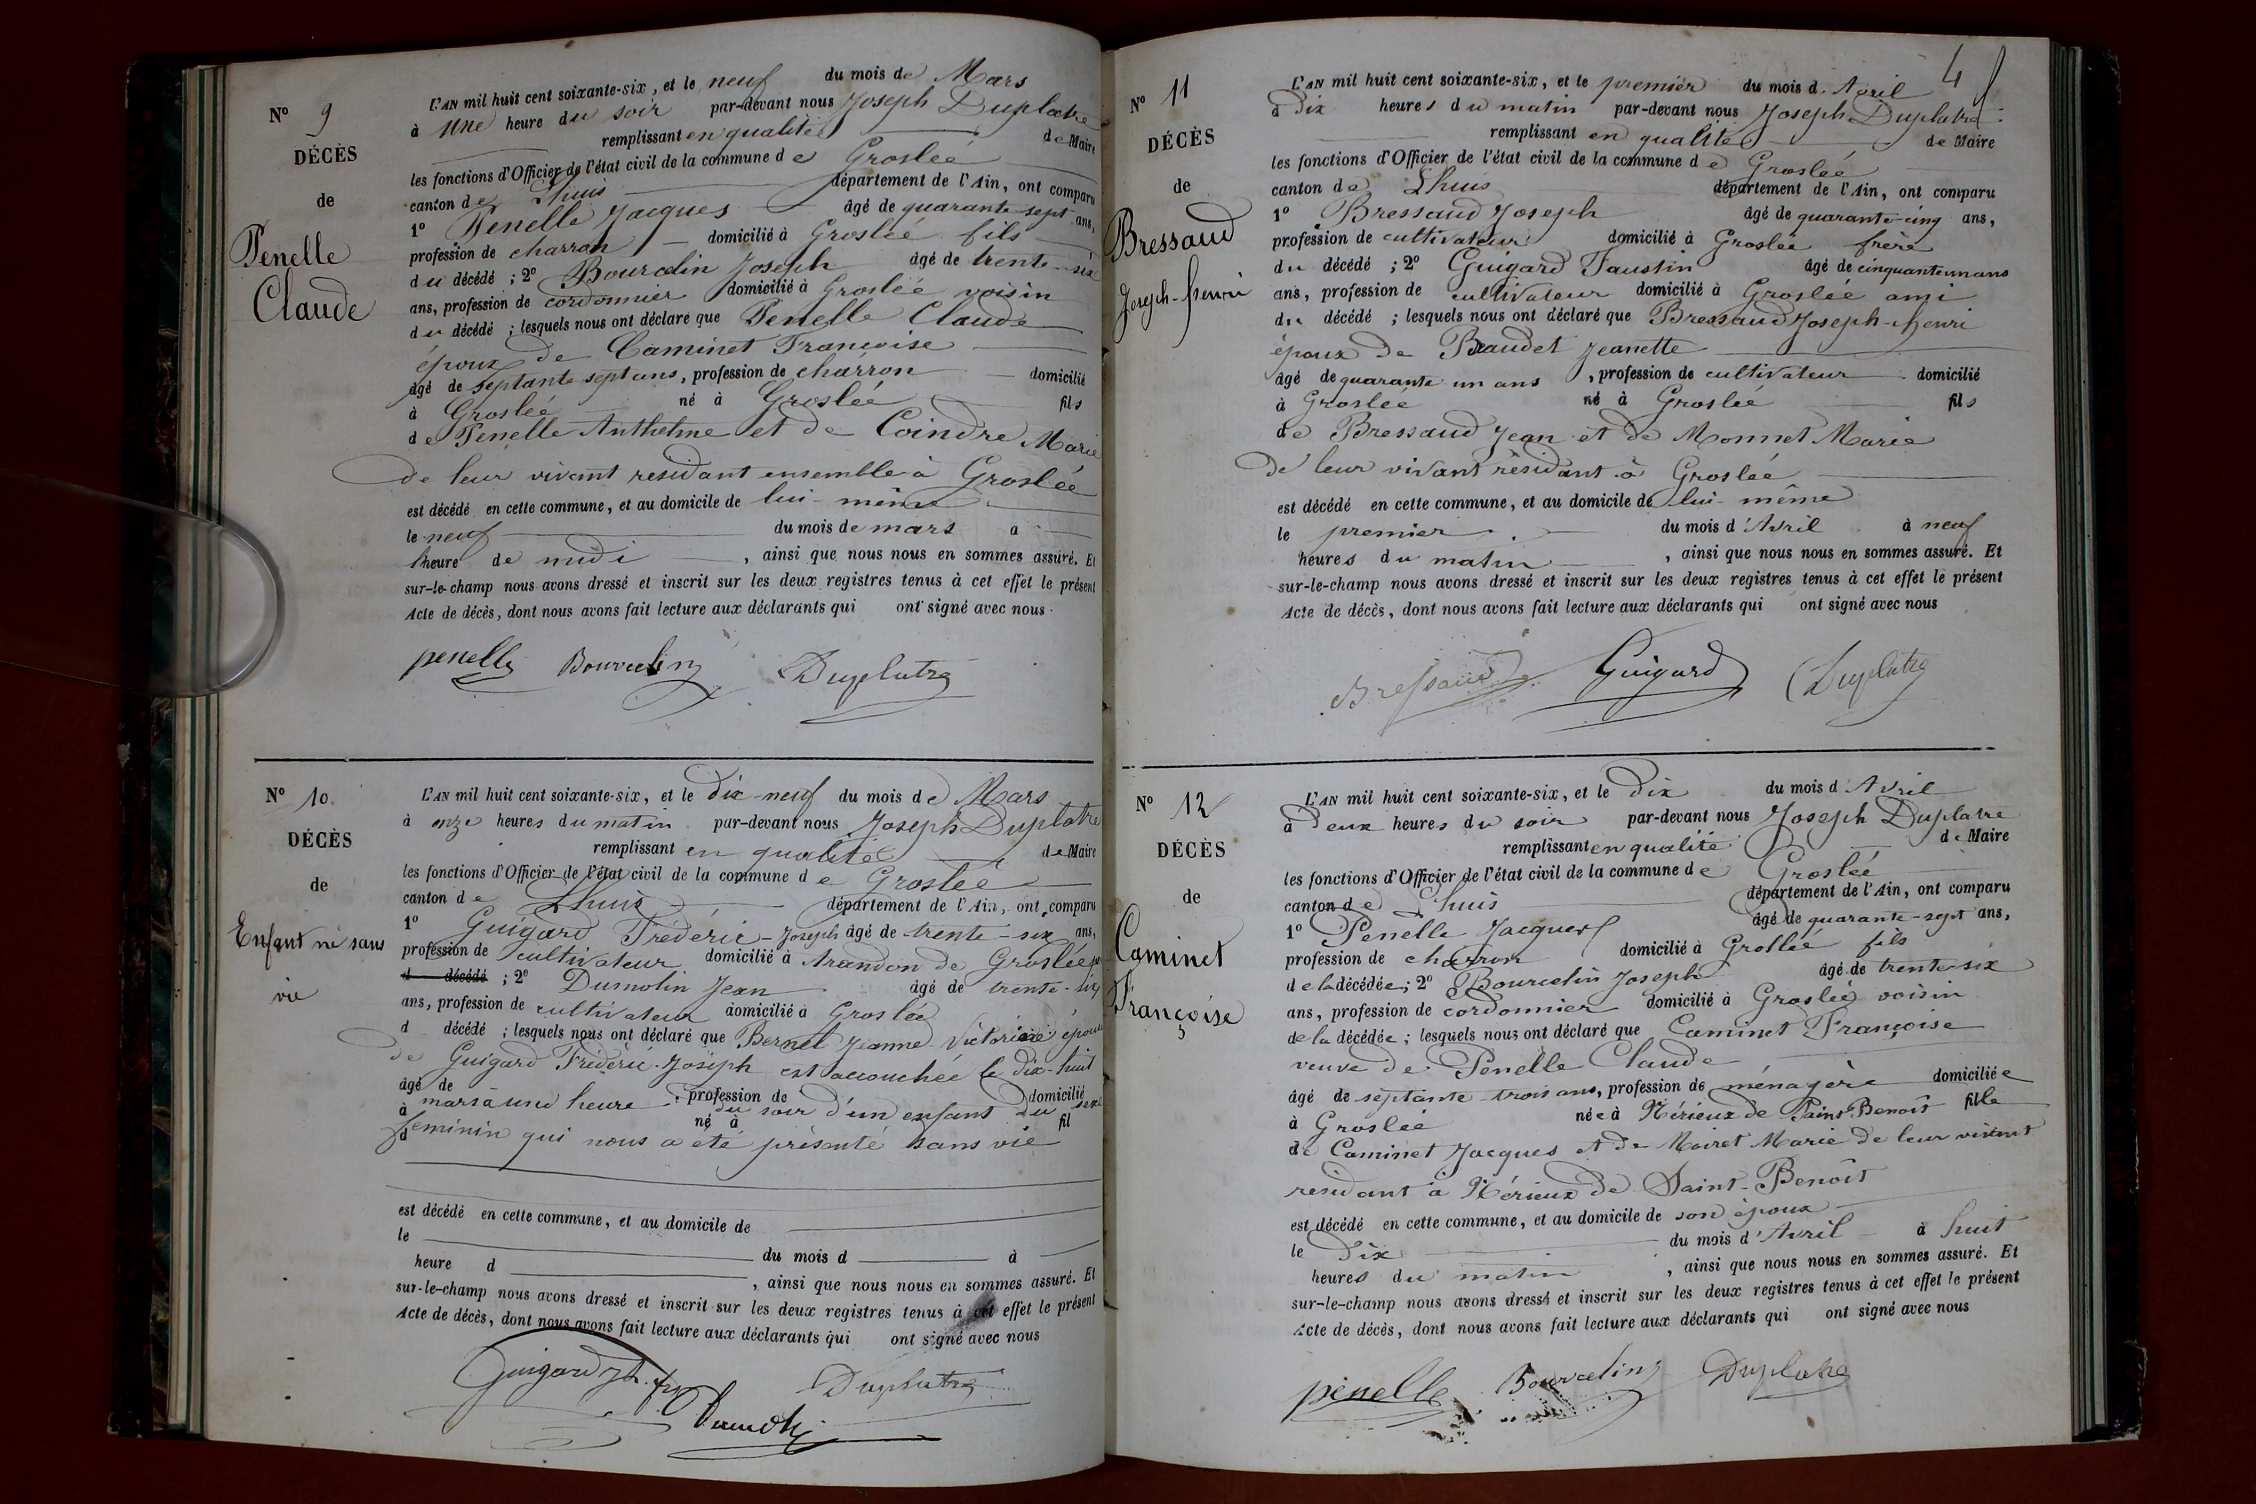 N° 9
DÉCÈS
de
Penelle
Claude
L'AN mil huit cent soixante-six, et le neuf du mois de Mars
à une heure du soir par-devant nous Joseph Duplatre
remplissant en qualité de Maire
les fonctions d'Officier de l'état civil de la commune de Groslée
canton de Lhuis département de l'Ain, ont comparu
1° Penelle Jacques âgé de quarante sept ans,
profession de charron domicilié à Groslée fils
du décédé ; 2° Bourcelin Joseph âgé de trente-six
ans, profession de cordonnier domicilié à Groslée voisin
du décédé ; lesquels nous ont déclaré que Penelle Claude
époux de Caminet Françoise
âgé de septante sept ans, profession de charron domicilié
à Groslée né à Groslée fils
de Penelle Anthelme et de Coindre Marie
de leur vivant residant ensemble à Groslée
est décédé en cette commune, et au domicile de lui-même
le neuf du mois de mars a
heure de midi , ainsi que nous nous en sommes assuré. Et
sur-le-champ nous avons dressé et inscrit sur les deux registres tenus à cet effet le présent
Acte de décès, dont nous avons fait lecture aux déclarants qui ont signé avec nous.
penelle Bourcelin Duplatre
N° 10
DÉCÈS
de
Enfant né sans
vie
L'AN mil huit cent soixante-six, et le dix-neuf du mois de Mars
à onze heures du matin par-devant nous Joseph Duplatre
remplissant en qualité de Maire
les fonctions d'Officier de l'état civil de la commune de Groslée
canton de Lhuis département de l'Ain, ont comparu
1° Guigard Frédéric-Joseph âgé de trente-six ans,
profession de cultivateur domicilié à Arandon de Groslée
d décédé ; 2° Dumolin Jean âgé de trente-six
ans, profession de cultivateur domicilié à Groslée
d décédé ; lesquels nous ont déclaré que Bernet Jeanne Victorine épouse
de Guigard Frédéric-Joseph est accouchée le dix-huit
âgé de mars à une heure profession de du soir d'un enfant du sexe domicilié
à né à fil
d féminin qui nous a été présenté sans vie
est décédé en cette commune, et au domicile de
le du mois d à
heure d , ainsi que nous nous en sommes assuré. Et
sur-le-champ nous avons dressé et inscrit sur les deux registres tenus à cet effet le présent
Acte de décès, dont nous avons fait lecture aux déclarants qui ont signé avec nous
Guigard Duplatre
Dumolin
4
N° 11
DÉCÈS
de
Bressaud
Joseph-henri
L'AN mil huit cent soixante-six, et le premier du mois d'Avril
à Dix heures du matin par-devant nous Joseph Duplatre
remplissant en qualité de Maire
les fonctions d'Officier de l'état civil de la commune de Groslée
canton de Lhuis département de l'Ain, ont comparu
1° Bressaud Joseph âgé de quarante-cinq ans,
profession de cultivateur domicilié à Groslée frère
du décédé ; 2° Guigard Faustin âgé de cinquante un ans
ans, profession de cultivateur domicilié à Groslée ami
du décédé ; lesquels nous ont déclaré que Bressaud Joseph-henri
époux de Baudet Jeanette
âgé de quarante un ans , profession de cultivateur domicilié
à Groslée né à Groslée fils
de Bressaud Jean et de Monnet Marie
de leur vivant résidant à Groslée
est décédé en cette commune, et au domicile de lui-même
le premier du mois d'Avril à neuf
heures du matin , ainsi que nous nous en sommes assuré. Et
sur-le-champ nous avons dressé et inscrit sur les deux registres tenus à cet effet le présent
Acte de décès, dont nous avons fait lecture aux déclarants qui ont signé avec nous
Bressaud Guigard Duplatre
N° 12
DÉCÈS
de
Caminet
Françoise
L'AN mil huit cent soixante-six, et le dix du mois d'Avril
à deux heures du soir par-devant nous Joseph Duplatre
remplissant en qualité de Maire
les fonctions d'Officier de l'état civil de la commune de Groslée
canton de Lhuis département de l'Ain, ont comparu
1° Penelle Jacques âgé de quarante-sept ans,
profession de charron domicilié à Grollée fils
de la décédée ; 2° Bourcelin Joseph âgé de trente-six
ans, profession de cordonnier domicilié à Groslée voisin
de la décédée ; lesquels nous ont déclaré que Caminet Françoise
veuve de Penelle Claude
âgé de septante trois ans, profession de ménagère domiciliée
à Groslée née à Mérieux de Saint Benoît fille
de Caminet Jacques et de Moiret Marie de leur vivant
residant à Mérieux de Saint-Benoît
est décédé en cette commune, et au domicile de son époux
le Dix du mois d'Avril à huit
heures du matin , ainsi que nous nous en sommes assuré. Et
sur-le-champ nous avons dressé et inscrit sur les deux registres tenus à cet effet le présent
Acte de décès, dont nous avons fait lecture aux déclarants qui ont signé avec nous
penelle Bourcelin Duplatre